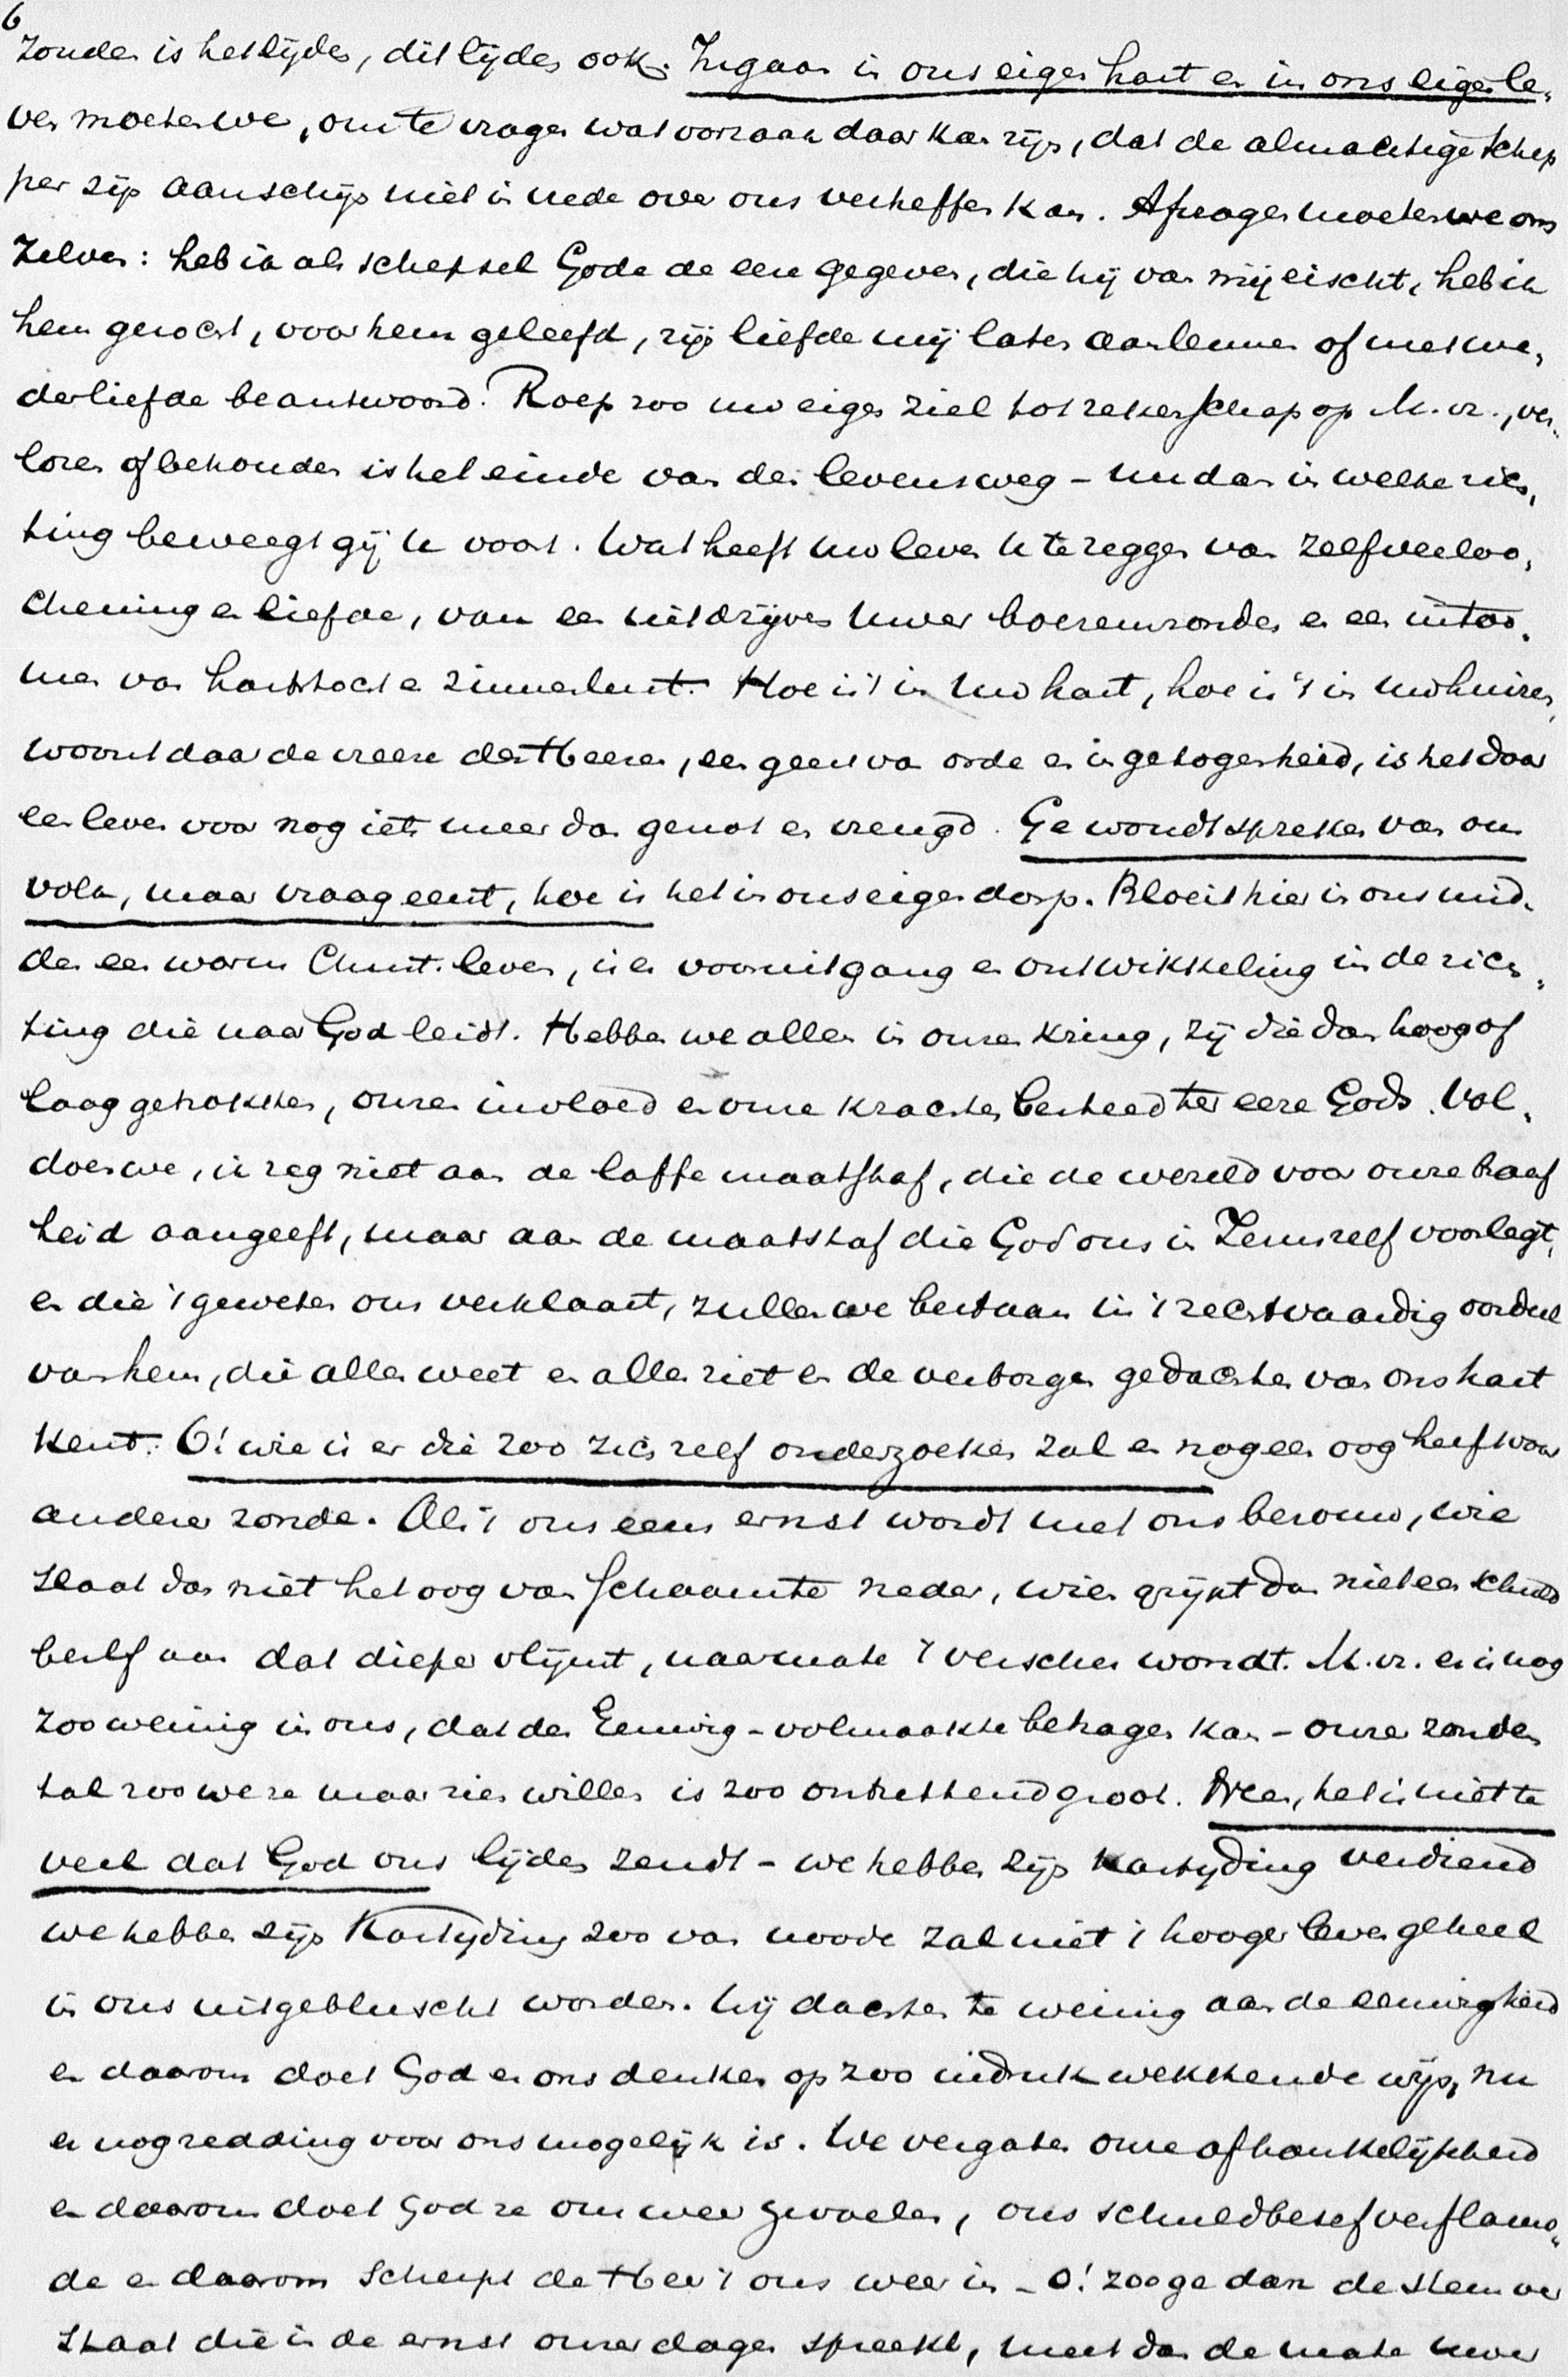 6
zonden is het lijden, dit lijden ook. Ingaan in ons eigen hart en in ons eigen le,
ven moeten we, om te vragen wat oorzaak daar kan zijn, dat de almachtige Schep
per zijn aanschijn niet in vrede over ons verheffen kan. Afvragen moeten we ons
zelven: heb ik als schepsel Gode de eere gegeven, die hij van mij eischt, heb ik
hem gezocht, voor hem geleefd, zijn liefde mij laten aanleunen of met we,
derliefde beantwoord. Roep zoo uw eigen ziel tot rekenschap op M. vr., ver,
loren of behouden is het einde van den levensweg - nu dan in welke rich,
ting beweegt gij u voort. Wat heeft uw leven u te zeggen van zelfverloo,
chening en liefde, van een uitdrijven uwer boezemzonden en een intoo,
men van hartstocht en zinnenlust. Hoe is 't in uw hart, hoe is 't in uw huizen,
woont daar de vreeze des Heeren, een geest van orde en ingetogenheid, is het daar
een leven voor nog iets meer dan genot en vreugd. Ge wondt spreken van ons
volk, maar vraag eerst, hoe is het in ons eigen dorp. Bloeit hier in ons mid,
den een warm Christ. leven, is er vooruitgang en ontwikkeling in de rich,
ting die naar God leidt. Hebben we allen in onzen kring, zij die dan hoog of
laag getrokken, onzen invloed en onze krachten besteed ter eere Gods. Vol,
doen we, ik zeg niet aan de laffe maatstaf, die de wereld voor onze braaf
heid aangeeft, maar aan de maatstaf die God ons in Zemzelf voorlegt,
en die 't geweten ons verklaart, zullen we bestaan in 't rechtvaardig oordeel
van hem, die alles weet en alles ziet en de verborgen gedachten van ons hart
kent. O! wie is er die zoo zich zelf onderzoeken zal en nog een oog heeft voor
anderer zonde. Als 't ons eens ernst wordt met ons berouw, wie
slaat dan niet het oog van schaamte neder, wien grijpt dan niet een schuld
besef aan dat dieper vlijmt, naarmate 't verscher wondt. M. vr. er is nog
zoo weinig in ons, dat den Eeuwig-volmaakte behagen kan - onzer zonden
tal zoo we ze maar zien willen is zoo ontzettend groot. Neen, het is niet te
veel dat God ons lijden zendt - we hebben zijn kastijding verdiend
we hebben zijn Kastijding zoo van noode zal niet 't hooger leven geheel
in ons uitgebluscht worden. Wij dachten te weinig aan de eeuwigheid
en daarom doet God er ons denken op zoo indrukwekkende wijs, nu
er nog redding voor ons mogelijk is. We vergaten onze afhankelijkheid
en daarom doet God ze ons weer gevoelen, ons schuldbesef verflauw,
de en daarom scherpt de Heer 't ons weer in - O! zoo ge dan de stem ver
staat die in de ernst onzer dagen spreekt, meet dan de mate uwer